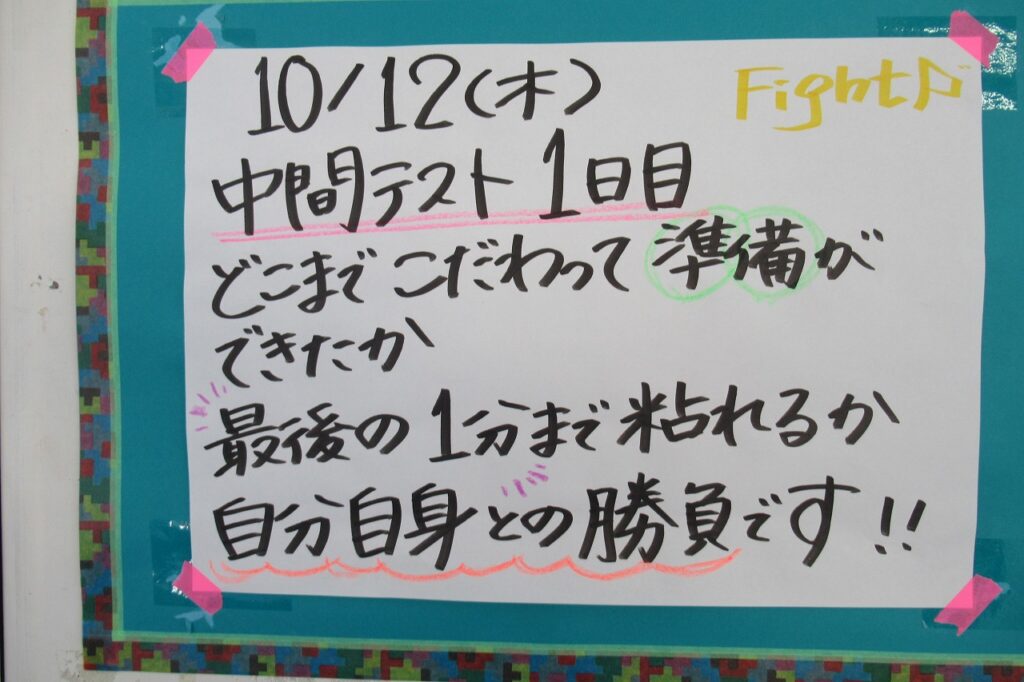 10/12(木)
Fight♫
中間テスト 1日目
どこまで こだわって 準備が
できたか
最後の 1分まで 粘れるか
自分自身との勝負です!!